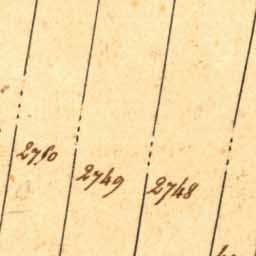 2750
2749
2748